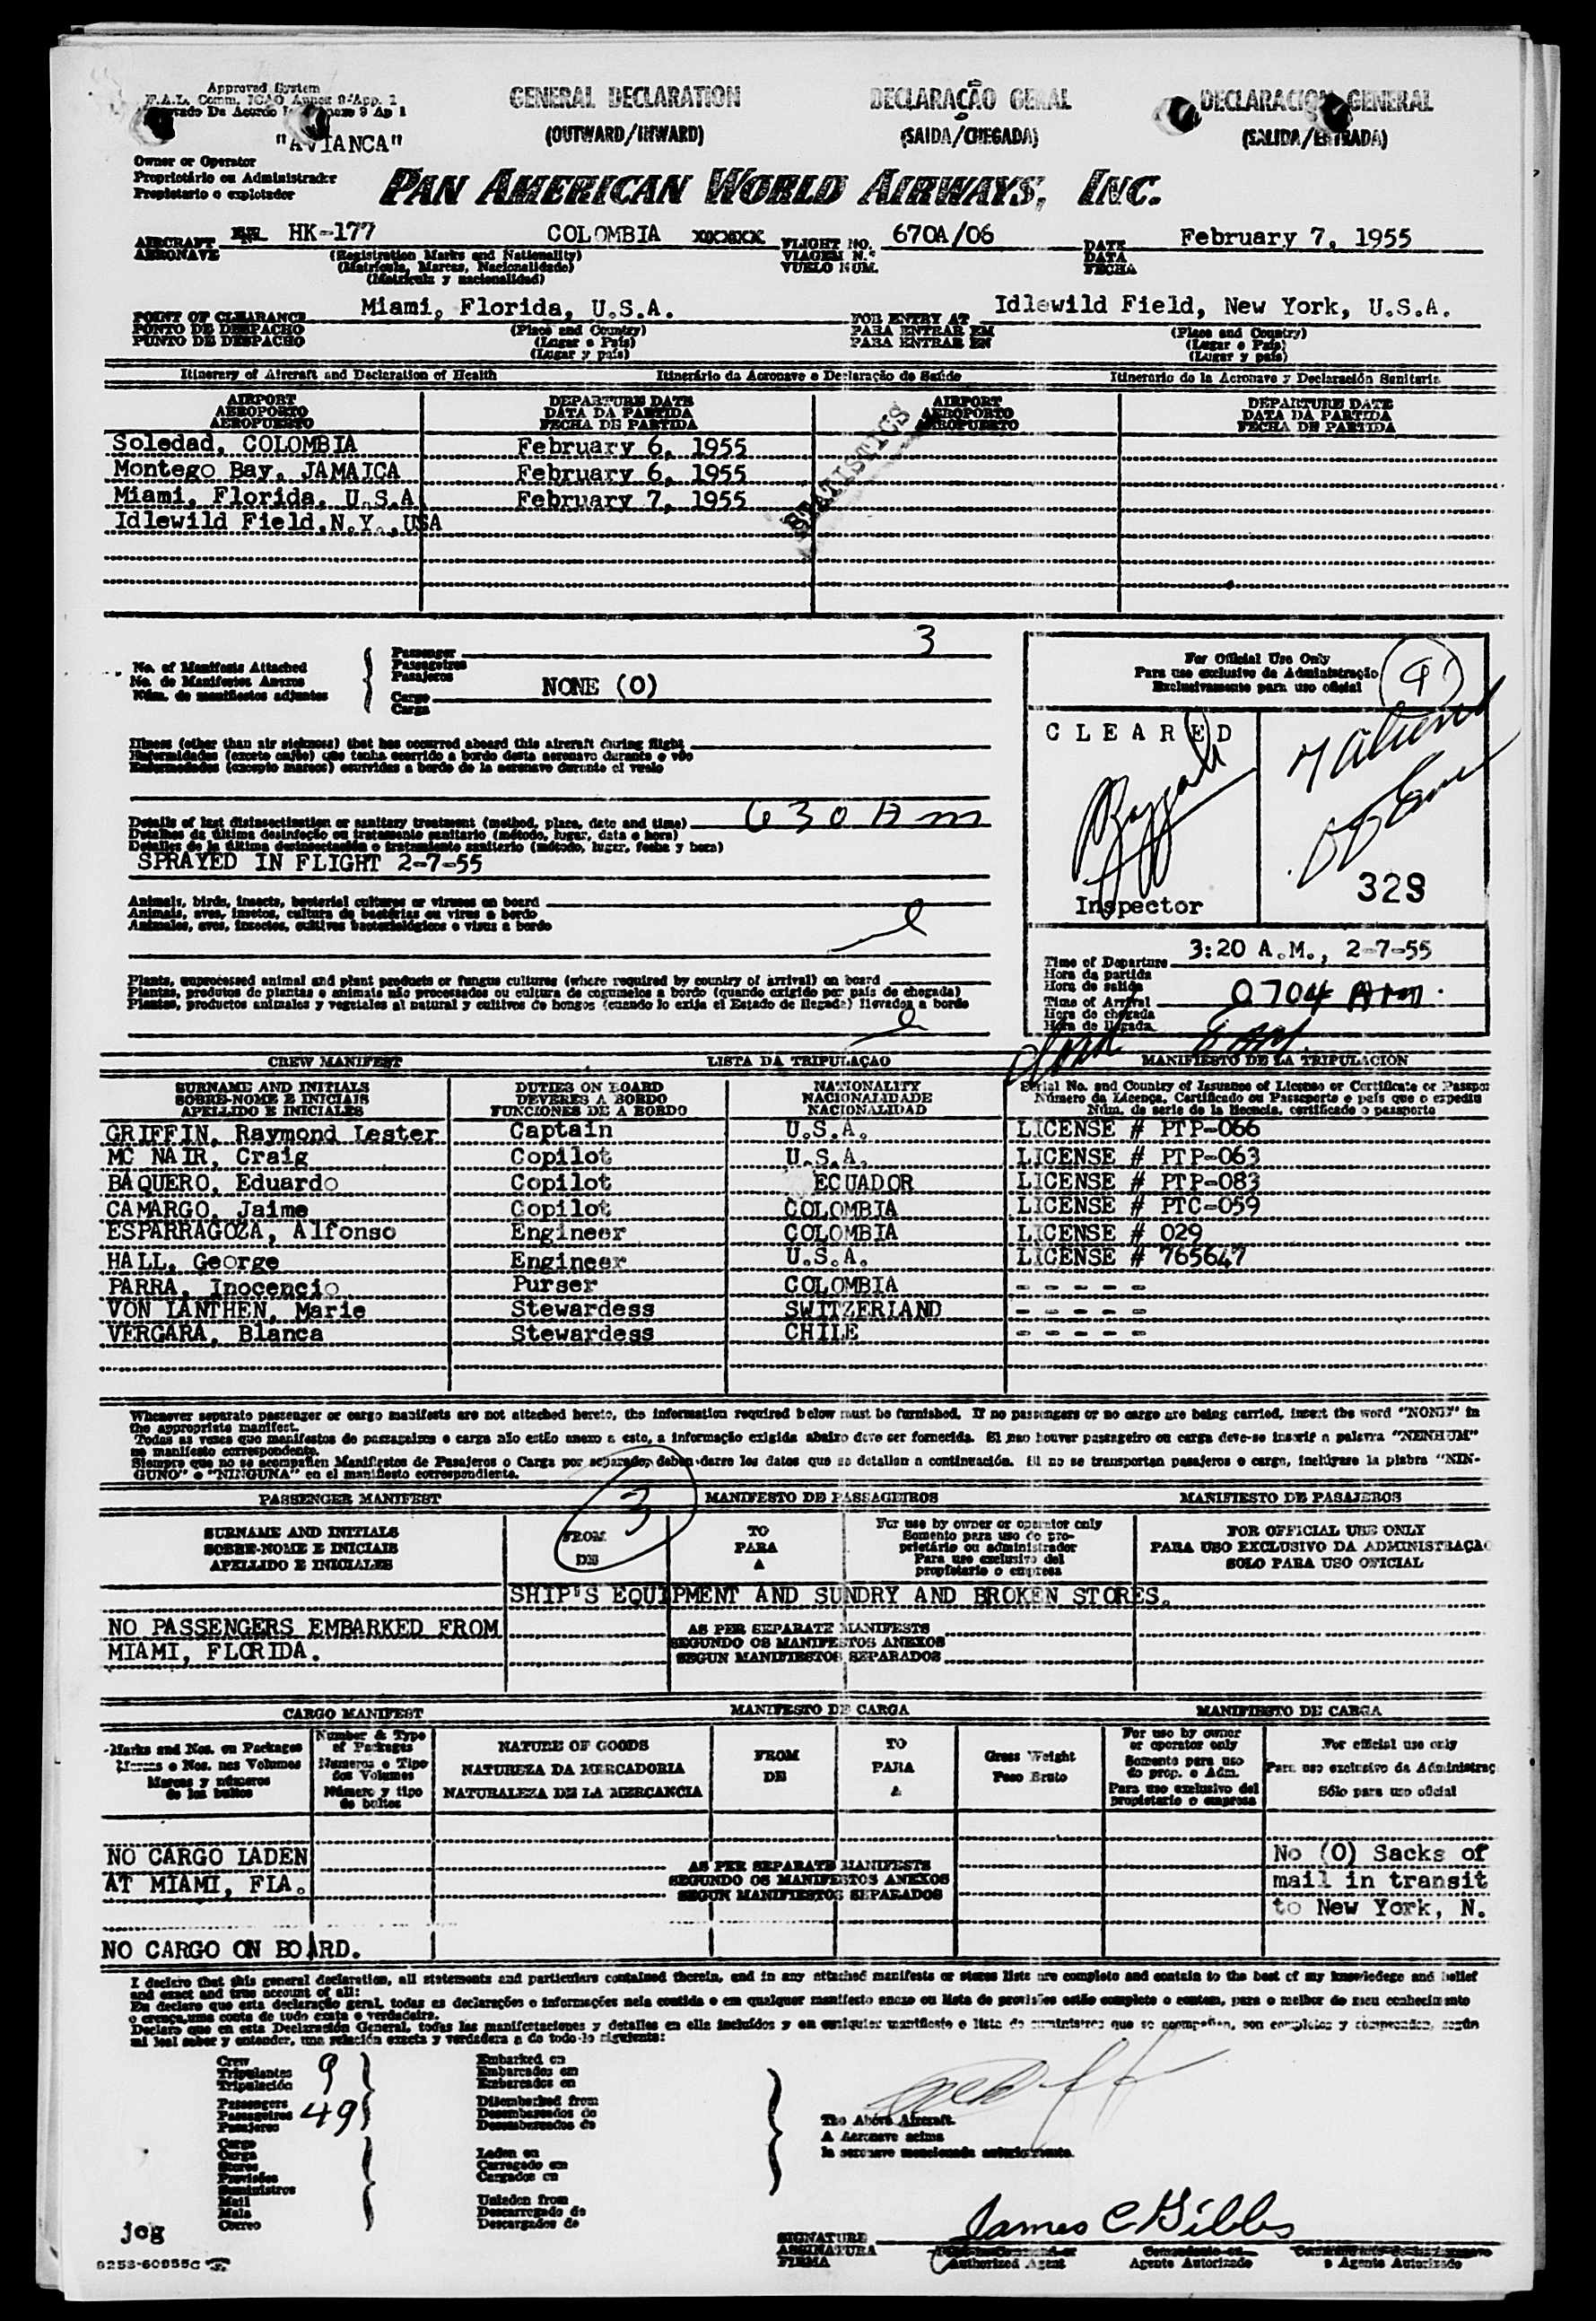 Approved System
F.A.L. Comm. ICAO Annex 9-App. 1
De Acordo 9 Ap 1
GENERAL DECLARATION
(OUTWARD/INWARD)
DECLARAÇÃO GERAL
(SAIDA/CHEGADA)
DECLARACION GENERAL
(SALIDA/ENTRADA)
"AVIANCA"
Owner or Operator
Proprietário ou Administrador
Propietario o explotador
PAN AMERICAN WORLD AIRWAYS, INC.
AIRCRAFT HK-177 COLOMBIA FLIGHT NO. 670A/06 DATE February 7, 1955
AERONAVE
(Registration Marks and Nationality)
(Matrícula, Marcas, Nacionalidade)
(Matrícula y nacionalidad)
VIAGEM N.°
VUELO NUM.
DATA
FECHA
POINT OF CLEARANCE Miami, Florida, U.S.A. FOR ENTRY AT Idlewild Field, New York, U.S.A.
PONTO DE DESPACHO
PUNTO DE DESPACHO
(Place and Country)
(Lugar e País)
(Lugar y país)
PARA ENTRAR EM
PARA ENTRAR EN
(Place and Country)
(Lugar e País)
(Lugar y país)
Itinerary of Aircraft and Declaration of Health
Itinerário da Aeronave e Declaração de Saúde
Itinerario de la Aeronave y Declaración Sanitaria
AIRPORT
AEROPORTO
AEROPUERTO
DEPARTURE DATE
DATA DA PARTIDA
FECHA DE PARTIDA
AIRPORT
AEROPORTO
AEROPUERTO
DEPARTURE DATE
DATA DA PARTIDA
FECHA DE PARTIDA
Soledad, COLOMBIA February 6, 1955
Montego Bay, JAMAICA February 6, 1955
Miami, Florida, U.S.A. February 7, 1955
Idlewild Field, N.Y., USA
STATISTICS
No. of Manifests Attached
No. de Manifestos Anexos
Núm. de manifiestos adjuntos
Passenger 3
Passageiros
Pasajeros
Cargo NONE (0)
Carga
For Official Use Only
Para uso exclusivo da Administração
Exclusivamente para uso oficial
9
CLEARED
Inspector
7 aliens
328
Illness (other than air sickness) that has occurred aboard this aircraft during flight
Enfermidades (exceto enjôo) que tenha ocorrido a bordo desta aeronave durante o vôo
Enfermedades (excepto mareos) ocurridas a bordo de la aeronave durante el vuelo
Details of last disinsectization or sanitary treatment (method, place, date and time) 630 Am
Detalhes da última desinfeção ou tratamento sanitario (método, lugar, data e hora)
Detalles de la última desinsectación o tratamiento sanitario (método, lugar, fecha y hora)
SPRAYED IN FLIGHT 2-7-55
Animals, birds, insects, bacterial cultures or viruses on board
Animais, aves, insetos, cultura de bactérias ou virus a bordo
Animales, aves, insectos, cultivos bacteriológicos o virus a bordo
Plants, unprocessed animal and plant products or fungus cultures (where required by country of arrival) on board
Plantas, produtos de plantas e animais não processados ou cultura de cogumelos a bordo (quando exigido por país de chegada)
Plantas, productos animales y vegetales al natural y cultivos de hongos (cuando lo exija el Estado de llegada) llevados a bordo
Time of Departure 3:20 A.M., 2-7-55
Hora da partida
Hora de salida
Time of Arrival 0704 Am
Hora de chegada
Hora de llegada
CREW MANIFEST
LISTA DA TRIPULAÇAO
MANIFIESTO DE LA TRIPULACION
SURNAME AND INITIALS
SOBRE-NOME E INICIAIS
APELLIDO E INICIALES
DUTIES ON BOARD
DEVERES A BORDO
FUNCIONES DE A BORDO
NATIONALITY
NACIONALIDADE
NACIONALIDAD
Serial No. and Country of Issuance of License or Certificate or Passpo
Número da Licença, Certificado ou Passaporte e país que o expediu
Núm. de serie de la licencia, certificado o pasaporte
GRIFFIN, Raymond Lester Captain U.S.A. LICENSE # PTP-066
MC NAIR, Craig Copilot U.S.A. LICENSE # PTP-063
BAQUERO, Eduardo Copilot ECUADOR LICENSE # PTP-083
CAMARGO, Jaime Copilot COLOMBIA LICENSE # PTC-059
ESPARRAGOZA, Alfonso Engineer COLOMBIA LICENSE # 029
HALL, George Engineer U.S.A. LICENSE # 765647
PARRA, Inocencio Purser COLOMBIA - - - - -
VON LANTHEN, Marie Stewardess SWITZERLAND - - - - -
VERGARA, Blanca Stewardess CHILE - - - - -
Whenever separate passenger or cargo manifests are not attached hereto, the information required below must be furnished. If no passengers or no cargo are being carried, insert the word "NONE" in
the appropriate manifest.
Todas as vezes que manifestos de passageiros e carga não estão anexo a este, a informação exigida abaixo deve ser fornecida. Si nao houver passageiro ou carga deve-se inserir a palavra "NENHUM"
no manifesto correspondente.
Siempre que no se acompañen Manifiestos de Pasajeros o Carga por separado, deben darse los datos que se detallan a continuación. Si no se transportan pasajeros o carga, inclúyase la plabra "NIN-
GUNO" o "NINGUNA" en el manifiesto correspondiente.
PASSENGER MANIFEST
MANIFESTO DE PASSAGEIROS
MANIFIESTO DE PASAJEROS
3
SURNAME AND INITIALS
SOBRE-NOME E INICIAIS
APELLIDO E INICIALES
FROM
DE
TO
PARA
A
For use by owner or operator only
Somento para uso do pro-
prietário ou administrador
Para uso exclusivo del
propietario o empresa
FOR OFFICIAL USE ONLY
PARA USO EXCLUSIVO DA ADMINISTRAÇAO
SOLO PARA USO OFICIAL
SHIP'S EQUIPMENT AND SUNDRY AND BROKEN STORES.
NO PASSENGERS EMBARKED FROM
MIAMI, FLORIDA.
AS PER SEPARATE MANIFESTS
SEGUNDO OS MANIFESTOS ANEXOS
SEGUN MANIFIESTOS SEPARADOS
CARGO MANIFEST
MANIFESTO DE CARGA
MANIFIESTO DE CARGA
Marks and Nos. on Packages
Marcas e Nos. nos Volumes
Marcas y números
de los bultos
Number & Type
of Packages
Numeros e Tipo
dos Volumes
Número y tipo
de bultos
NATURE OF GOODS
NATUREZA DA MERCADORIA
NATURALEZA DE LA MERCANCIA
FROM
DE
TO
PARA
A
Gross Weight
Peso Bruto
For use by owner
or operator only
Somento para uso
do prop. o Adm.
Para uso exclusivo del
propietario o empresa
For official use only
Para uso exclusivo da Administraç
Sólo para uso oficial
NO CARGO LADEN
AT MIAMI, FLA.
AS PER SEPARATE MANIFESTS
SEGUNDO OS MANIFESTOS ANEXOS
SEGUN MANIFIESTOS SEPARADOS
No (0) Sacks of
mail in transit
to New York, N.
NO CARGO ON BOARD.
I declare that this general declaration, all statements and particulars contained therein, and in any attached manifests or stores lists are complete and contain to the best of my knowledege and belief
and exact and true account of all:
Eu declaro que esta declaração geral, todas as declarações e informações nela contida e em qualquer manifesto anexo ou lista de provisões estão completo e contem, para o melhor do meu conhecimento
e crença, uma conta de tudo exata e verdadeira.
Declaro que en esta Declaración General, todas las manifestaciones y detalles en ella incluidos y en cualquier manifiesto o lista de suministros que se acompañen, son completos y comprenden, según
mi leal saber y entender, una relación exacta y verdadera a de todo lo siguiente:
Crew 9
Tripulantes
Tripulación
Passengers 49
Passageiros
Pasajeros
Cargo
Carga
Stores
Provisões
Suministros
Mail
Mala
Correo
Embarked on
Embarcados em
Embarcados en
Disembarked from
Desembarcados do
Desembarcados de
Laden on
Carregado em
Cargados en
Unladen from
Descarregado de
Descargados de
The Above Aircraft.
A Aeronave acima
la aeronave mencionada anteriormente.
jcg
9253-60855C
SIGNATURE James C Gibbs
ASSINATURA
FIRMA
Authorized Agent
Agente Autorizado
o Agente Autorizado